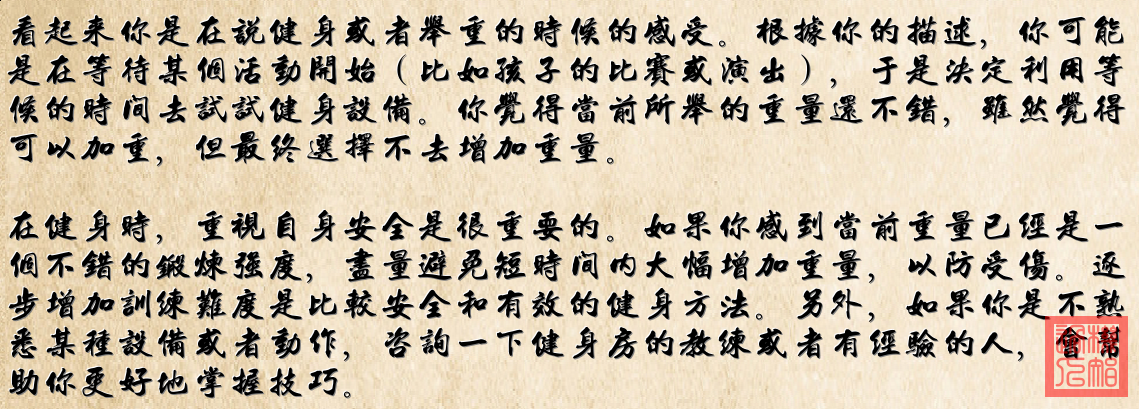 看起来你是在說健身或者舉重的時候的感受。根據你的描述，你可能
是在等待某個活動開始（比如孩子的比賽或演出），于是決定利用等
候的時间去試試健身設備。你覺得當前所舉的重量還不錯，雖然覺得
可以加重，但最终選擇不去增加重量。
在健身時，重視自身安全是很重要的。如果你感到當前重量已經是一
個不錯的鍛煉強度，盡量避免短時间内大幅增加重量，以防受傷。逐
步增加訓練難度是比較安全和有效的健身方法。另外，如果你是不熟
悉某種設備或者動作，咨詢一下健身房的教練或者有經驗的人，會幫
助你更好地掌握技巧。